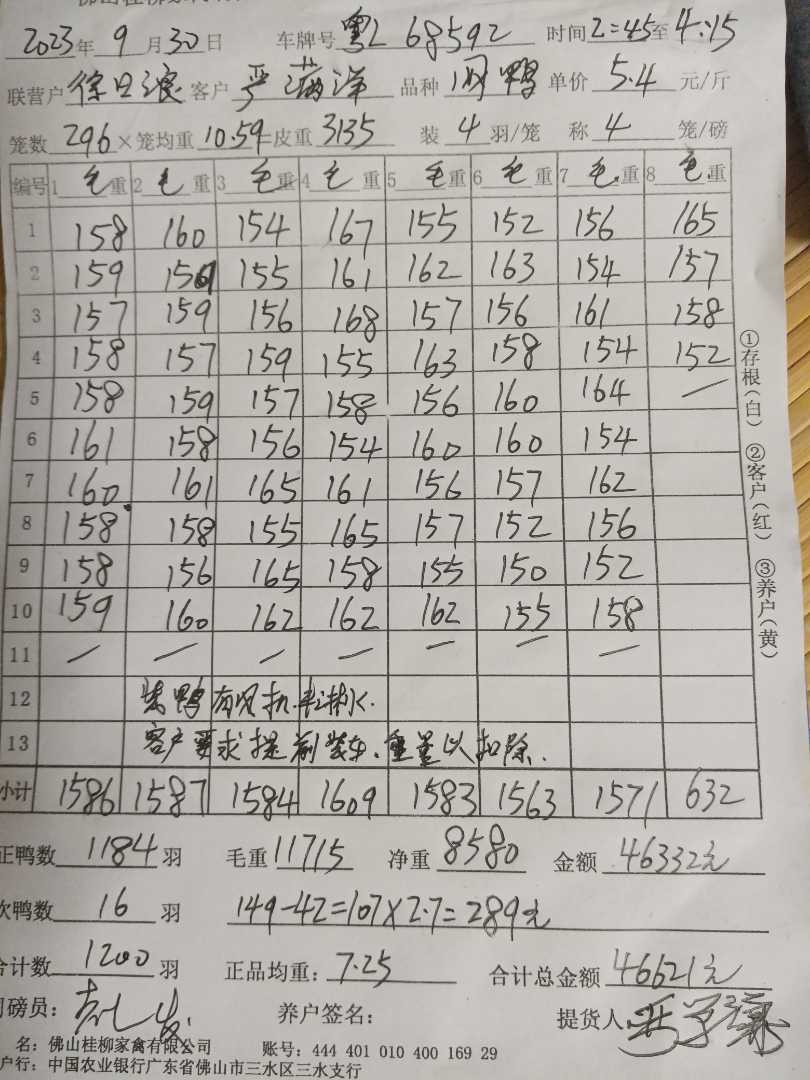 2023年9月30日 车牌号 粤L 68592 时间2:45至4:15
联营户 徐日浪 客户 严满洋 品种 网鸭 单价 5.4 元/斤
笼数 296 × 笼均重 10.59 = 皮重 3135 装 4 羽/笼 称 4 笼/磅
编号 1 毛 重 2 毛 重 3 毛 重 4 毛 重 5 毛 重 6 毛 重 7 毛 重 8 毛 重
1 158 160 154 167 155 152 156 165
2 159 155 161 162 163 154 157
3 157 159 156 168 157 156 161 158
4 158 157 159 155 163 158 154 152
5 158 159 157 158 156 160 164 —
6 161 158 156 154 160 160 154
7 160 161 165 161 156 157 162
8 158 158 155 165 157 152 156
9 158 156 165 158 155 150 152
10 159 160 162 162 162 155 158
11 — — — — — — —
12 装鸭有风扒
13 客户要求提前装车、重量以扣除.
小计 1586 1587 1584 1609 1583 1563 1571 632
正鸭数 1184 羽 毛重 11715 净重 8580 金额 46332元
次鸭数 16 羽 149-42=107×2.7=289元
合计数 1200 羽 正品均重: 7.25 合计总金额 46621元
司磅员: 养户签名: 提货人:
名: 佛山桂柳家禽有限公司 账号: 444 401 010 400 169 29
户行: 中国农业银行广东省佛山市三水区三水支行
①存根(白) ②客户(红) ③养户(黄)